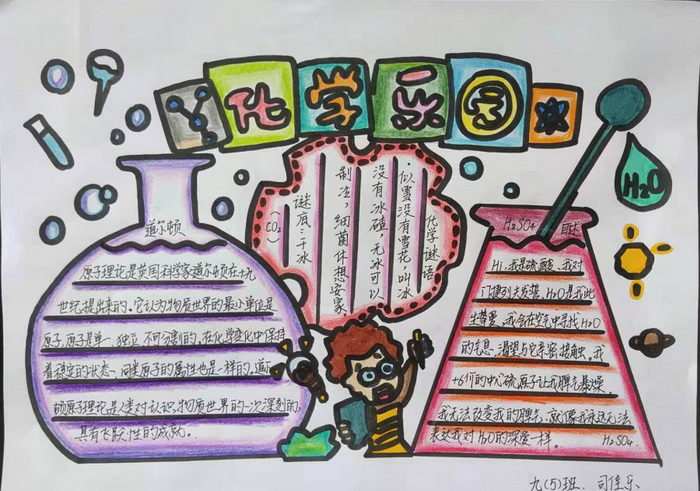 化学乐园
道尔顿
原子理论是英国科学家道尔顿在十九
世纪提出来的,它认为物质世界的最小单位是
原子,原子是单一、独立、不可分割的,在化学变化中保持
着稳定的状态、同类原子的属性也是一样的,道尔
顿原子理论是人类对认识物质世界的一次深刻的、
具有飞跃性的成就。
化学谜语
似雪没有雪花,叫冰
没有冰碴,无冰可以
制冷,细菌休想安家
谜底:干冰
(CO₂)
H₂SO₄
Hi,我是硫酸,我对
H₂O是我此
生挚爱,我会在空气中寻找H₂O
的气息,渴望与它亲密接触,我
+6价的中心硫原子让我脾气暴燥
我无法改变我的脾气,就像我永远无法
表达我对H₂O的深爱一样。
H₂SO₄
H₂O
九(5)班、司佳乐